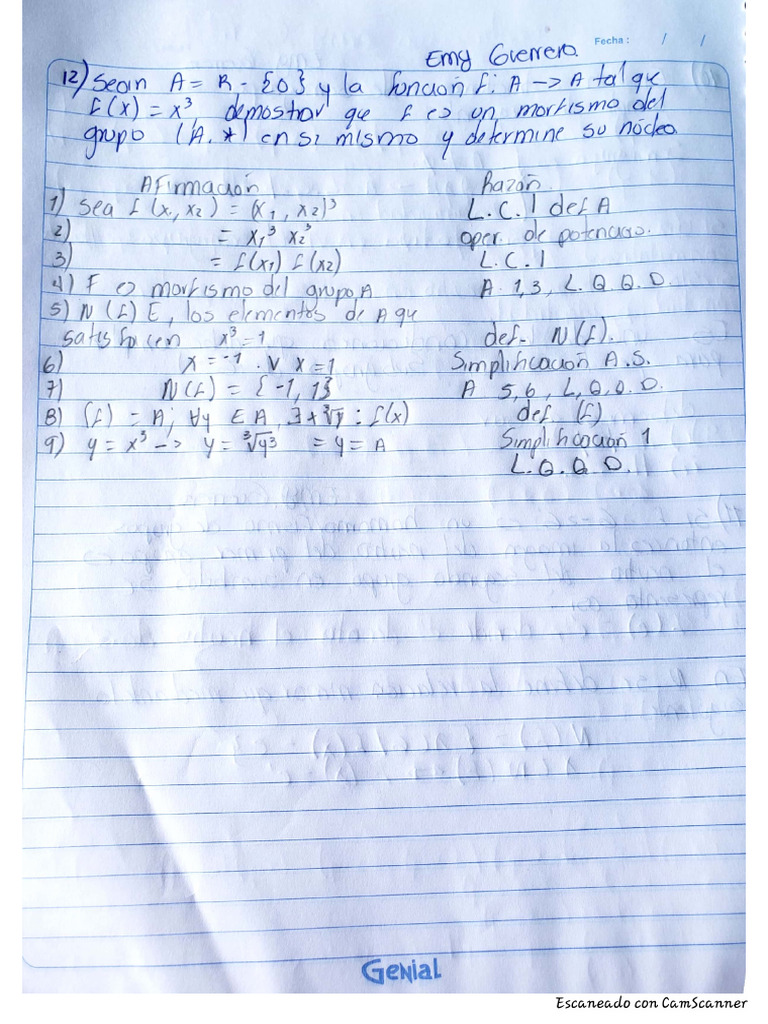 Fecha: / /
Emy Guerrero.
12) Sean A = R - {0} y la función f: A -> A tal que
f(x) = x³ demostrar que f es un morfismo del
grupo (A, *) en sí mismo y determine su núcleo.
Afirmación Razón
1) Sea f(x, x₂) = (x₁, x₂)³ L.C.1 def A
2) = x₁³ x₂³ oper. de potencias.
3) = f(x₁) f(x₂) L.C.1
4) F es morfismo del grupo A A. 1,3, L.Q.Q.D.
5) N(f) E, los elementos de A que
satisfacen x³=1 def. N(f).
6) x = -1 . V x = 1 Simplificación A.S.
7) N(f) = { -1, 1} A 5,6, L.Q.Q.D.
8) (f) = A; ∀y ∈ A, ∃ : f(x) def (f)
9) y = x³ -> y = ³√y³ = y = A Simplificación 1
L.Q.Q.D.
Genial
Escaneado con CamScanner